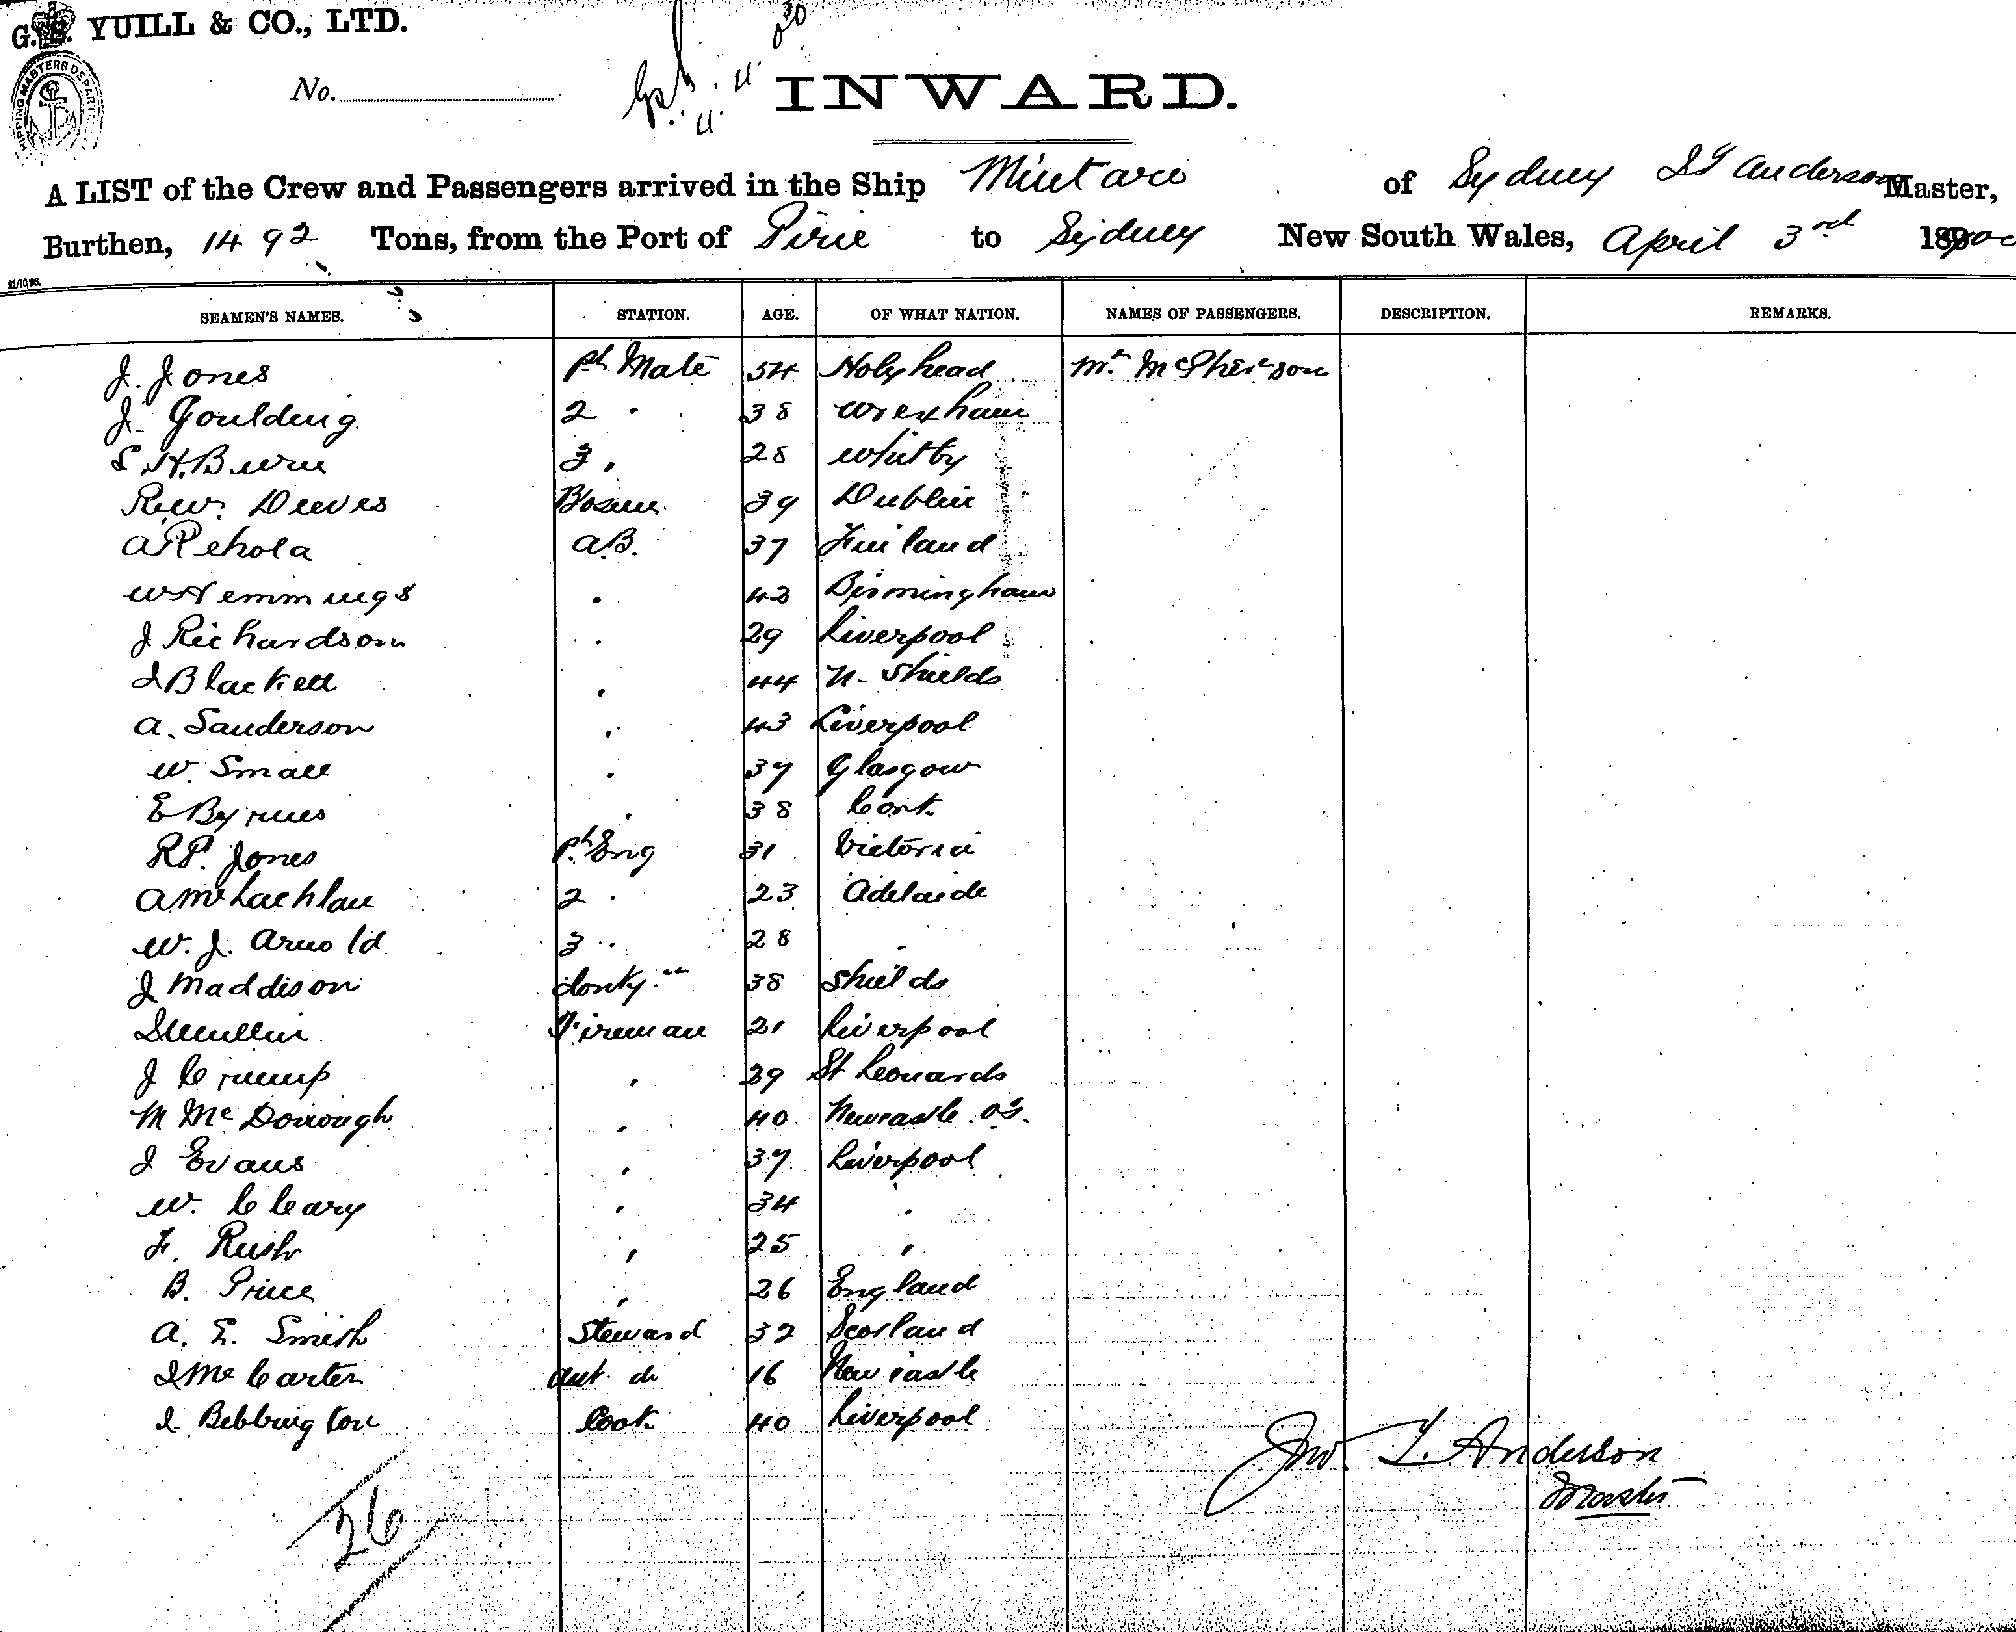 G.S. YUILL & CO., LTD.
SHIPPING MASTERS DEPART
No.
INWARD.
A LIST of the Crew and Passengers arrived in the Ship Mintaro of Sydney J T Anderson Master,
Burthen, 1492 Tons, from the Port of Pirie to Sydney New South Wales, April 3rd 1900
SEAMEN'S NAMES. STATION. AGE. OF WHAT NATION. NAMES OF PASSENGERS. DESCRIPTION. REMARKS.
J. Jones Mate 54 Holyhead Mr. McPherson
J. Goulding 2 " 38 Wrexham
S H. Burn 3 " 28 Whitby
Deeves Bosun 39 Dublin
A Rehola A.B. 37 Finland
W Hemmings " 42 Birmingham
J Richardson " 29 Liverpool
J Blackett " 44 N. Shields
A. Sanderson " 43 Liverpool
W. Small " 37 Glasgow
E Byrnes " 38 Cork
R P. Jones Eng 31 Victoria
A McLachlan 2 " 23 Adelaide
W. J. Arnold 3 " 28 "
J Maddison donkyman 38 Shields
Fireman 21 Liverpool
J Crump " 29 St Leonards
M McDonough " 40 Newcastle
J Evans " 37 Liverpool
W. Cleary " 34 "
F. Rush " 25 "
B. Price " 26 England
A. E. Smith Steward 32 Scotland
J McCarter 16 Newcastle
J Bebbington Cook 40 Liverpool
Jno. T. Anderson
Master
26